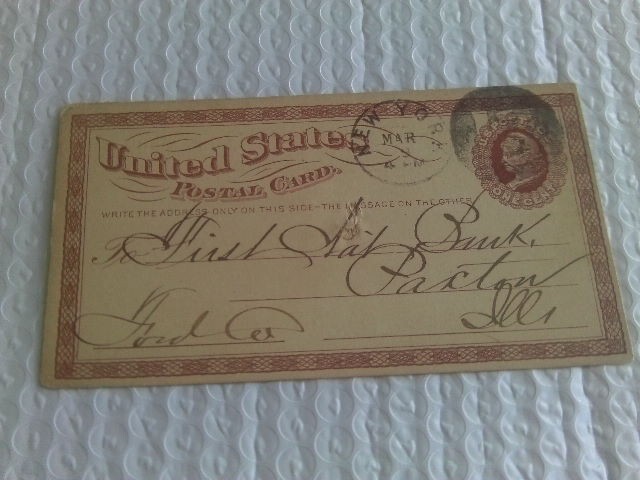 United States
Postal Card.
WRITE THE ADDRESS ONLY ON THIS SIDE-THE MESSAGE ON THE OTHER
NEW YORK
MAR
ONE CENT
To First Nat Bank,
Paxton
Ford Co
Ills